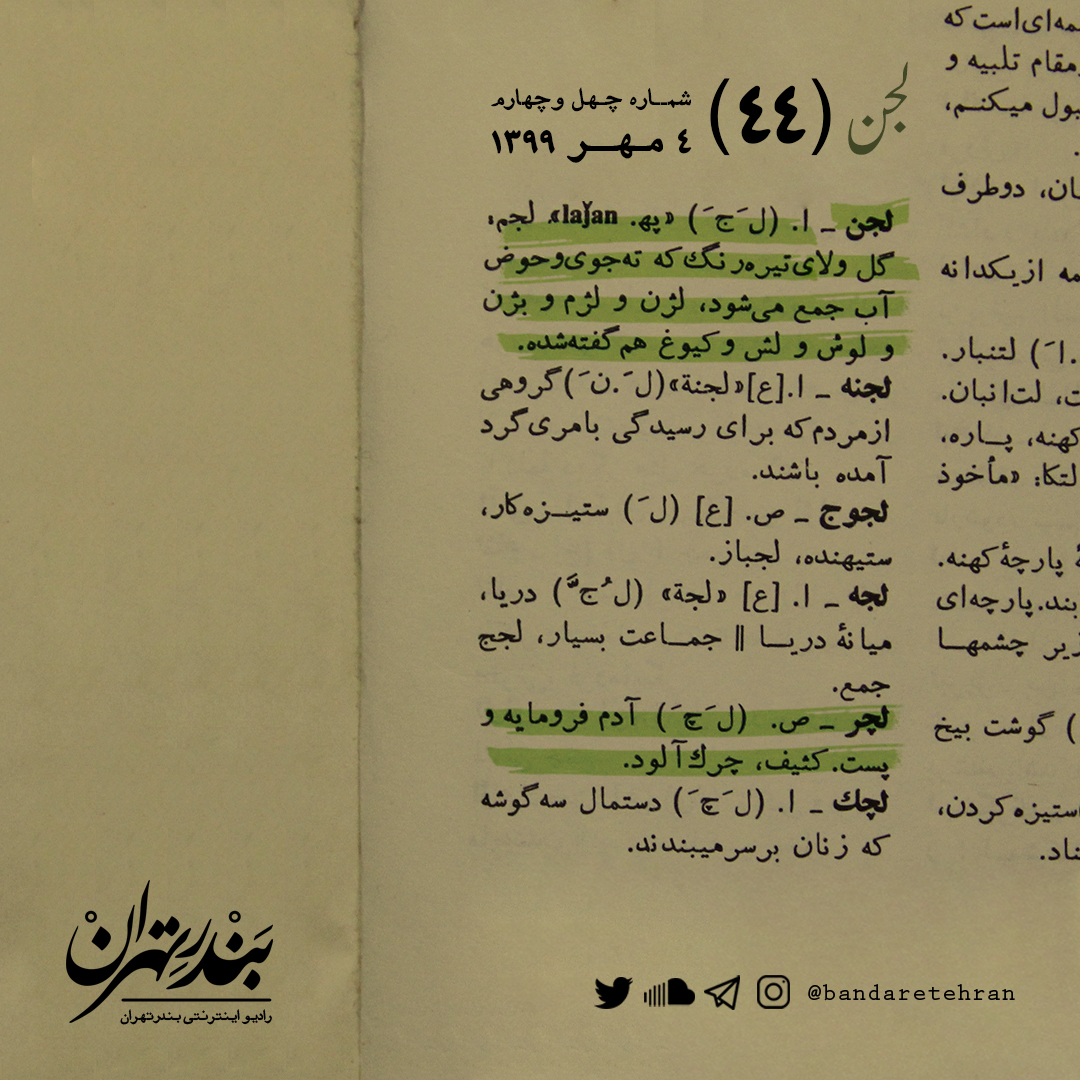 لجن (٤٤) شماره چهل و چهارم
٤ مهر ۱۳۹۹
مه‌ای‌است که
مقام تلبیه و
بول میکنم،
ان، دوطرف
مه ازیکدانه
.اَ) لتنبار.
ت، لت‌انبان.
کهنه، پاره،
لتکا: «مأخوذ
هٔ پارچهٔ کهنه.
بند. پارچه‌ای
زیر چشمها
) گوشت بیخ
استیزه کردن،
ناد.
لجن ـ ا. (لَ جَ) «پهـ. laǰan»، لجم،
گل ولای‌تیره‌رنگ که ته‌جوی‌وحوض
آب جمع می‌شود، لژن و لژم و بژن
و لوش و لش و کیوغ هم گفته‌شده.
لجنه ـ ا.[ع]«لجنة»(لَ.نَ)گروهی
ازمردم‌که برای رسیدگی بامری‌گرد
آمده باشند.
لجوج ـ ص. [ع] (لَ) ستیزه‌کار،
ستیهنده، لجباز.
لجه ـ ا. [ع] «لجة» (لُ جَّ) دریا،
میانهٔ دریا || جماعت بسیار، لجج
جمع.
لچر ـ ص. (لَ چَ) آدم فرومایه و
پست. کثیف، چرك‌آلود.
لچك ـ ا. (لَ چَ) دستمال سه‌گوشه
که زنان برسرمیبندند.
بَندرِتهران
رادیو اینترنتی بندرتهران
@bandaretehran